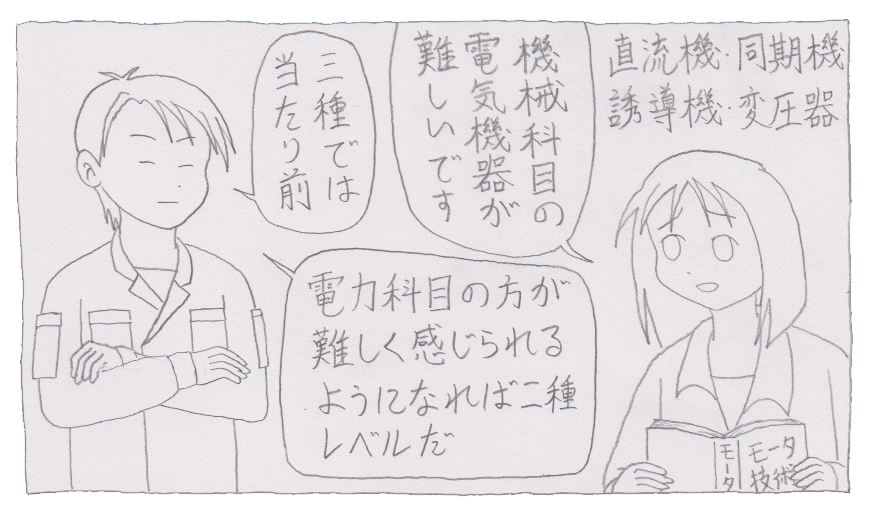 直流機・同期機
誘導機・変圧器
機械科目の
電気機器が
難しいです
三種では
当たり前
電力科目の方が
難しく感じられる
ようになれば二種
レベルだ
モータ
モータ
技術